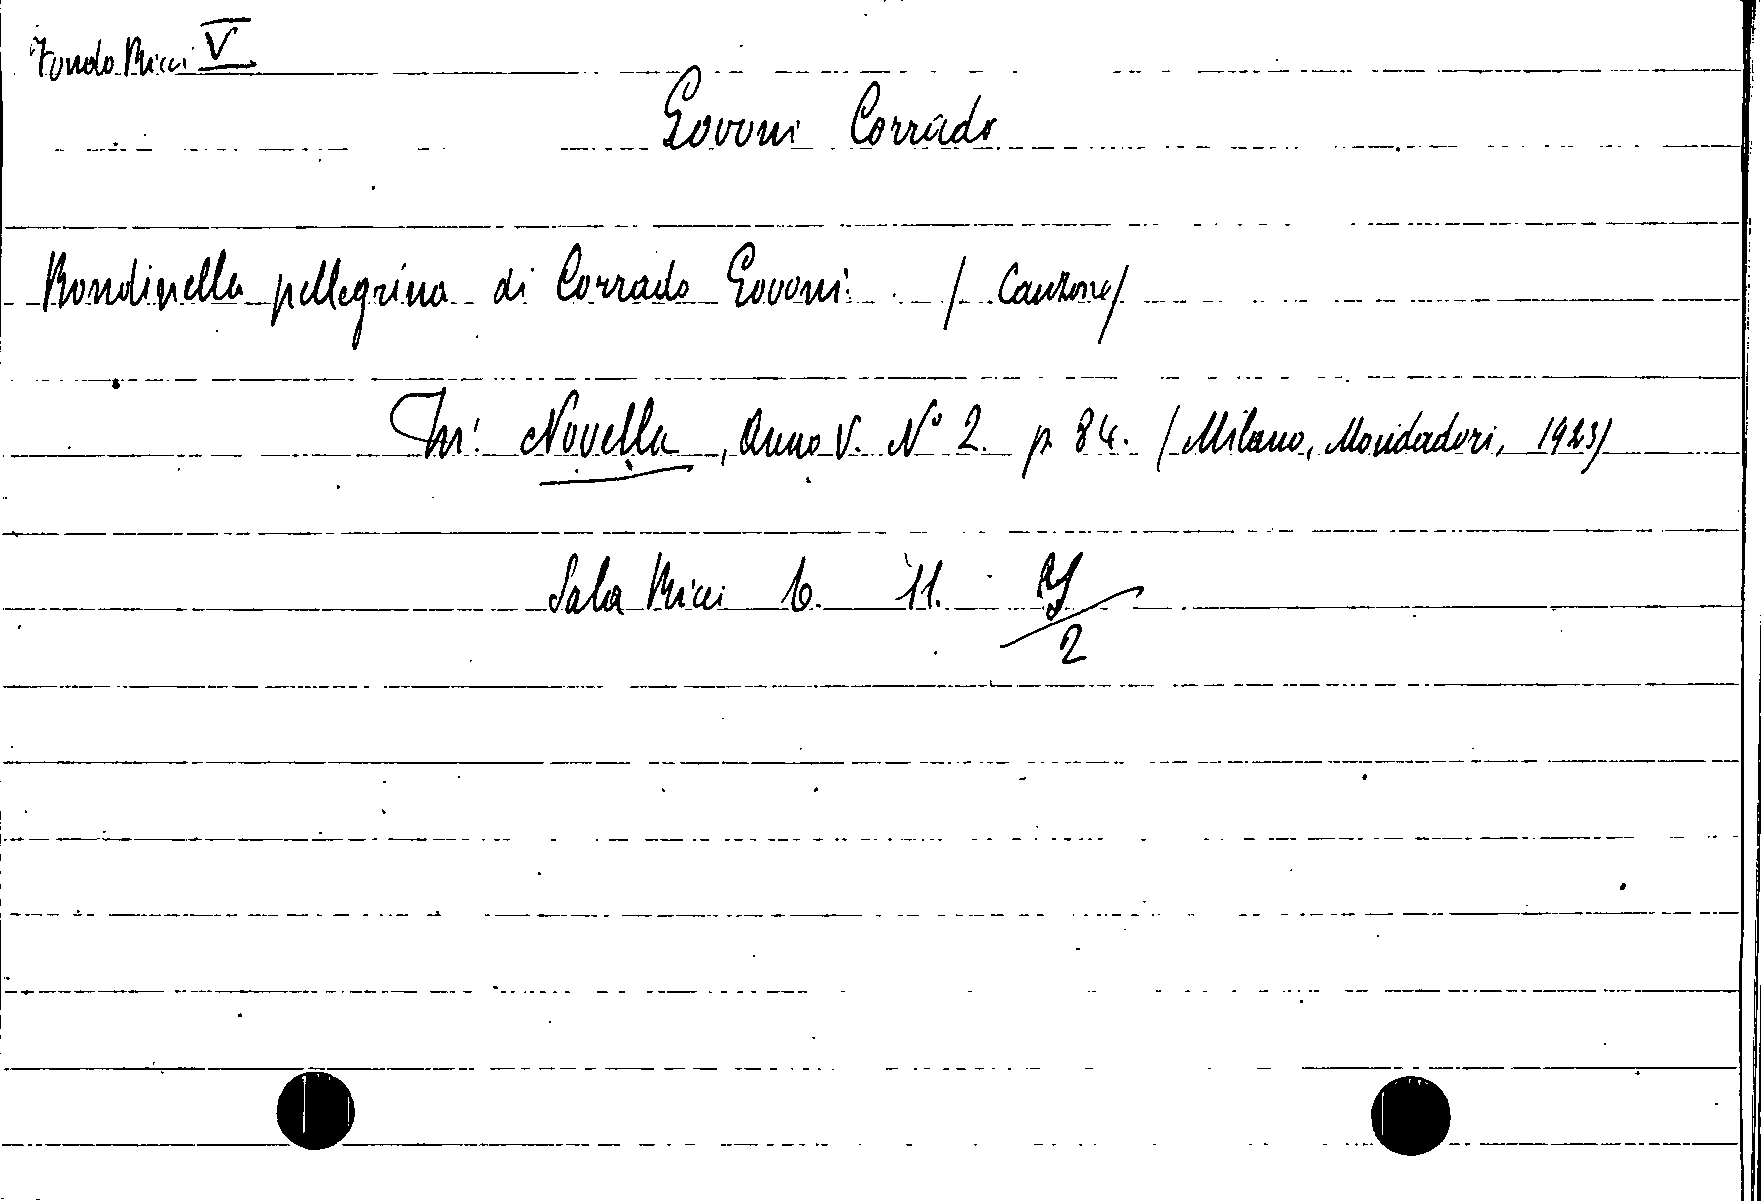 Fondo Ricci V
Govoni Corrado
Rondinella pellegrina di Corrado Govoni. / Canzone/
In: Novella, Anno V. N° 2. p 84. (Milano, Mondadori, 1923)
Sala Ricci 6. 11. 2